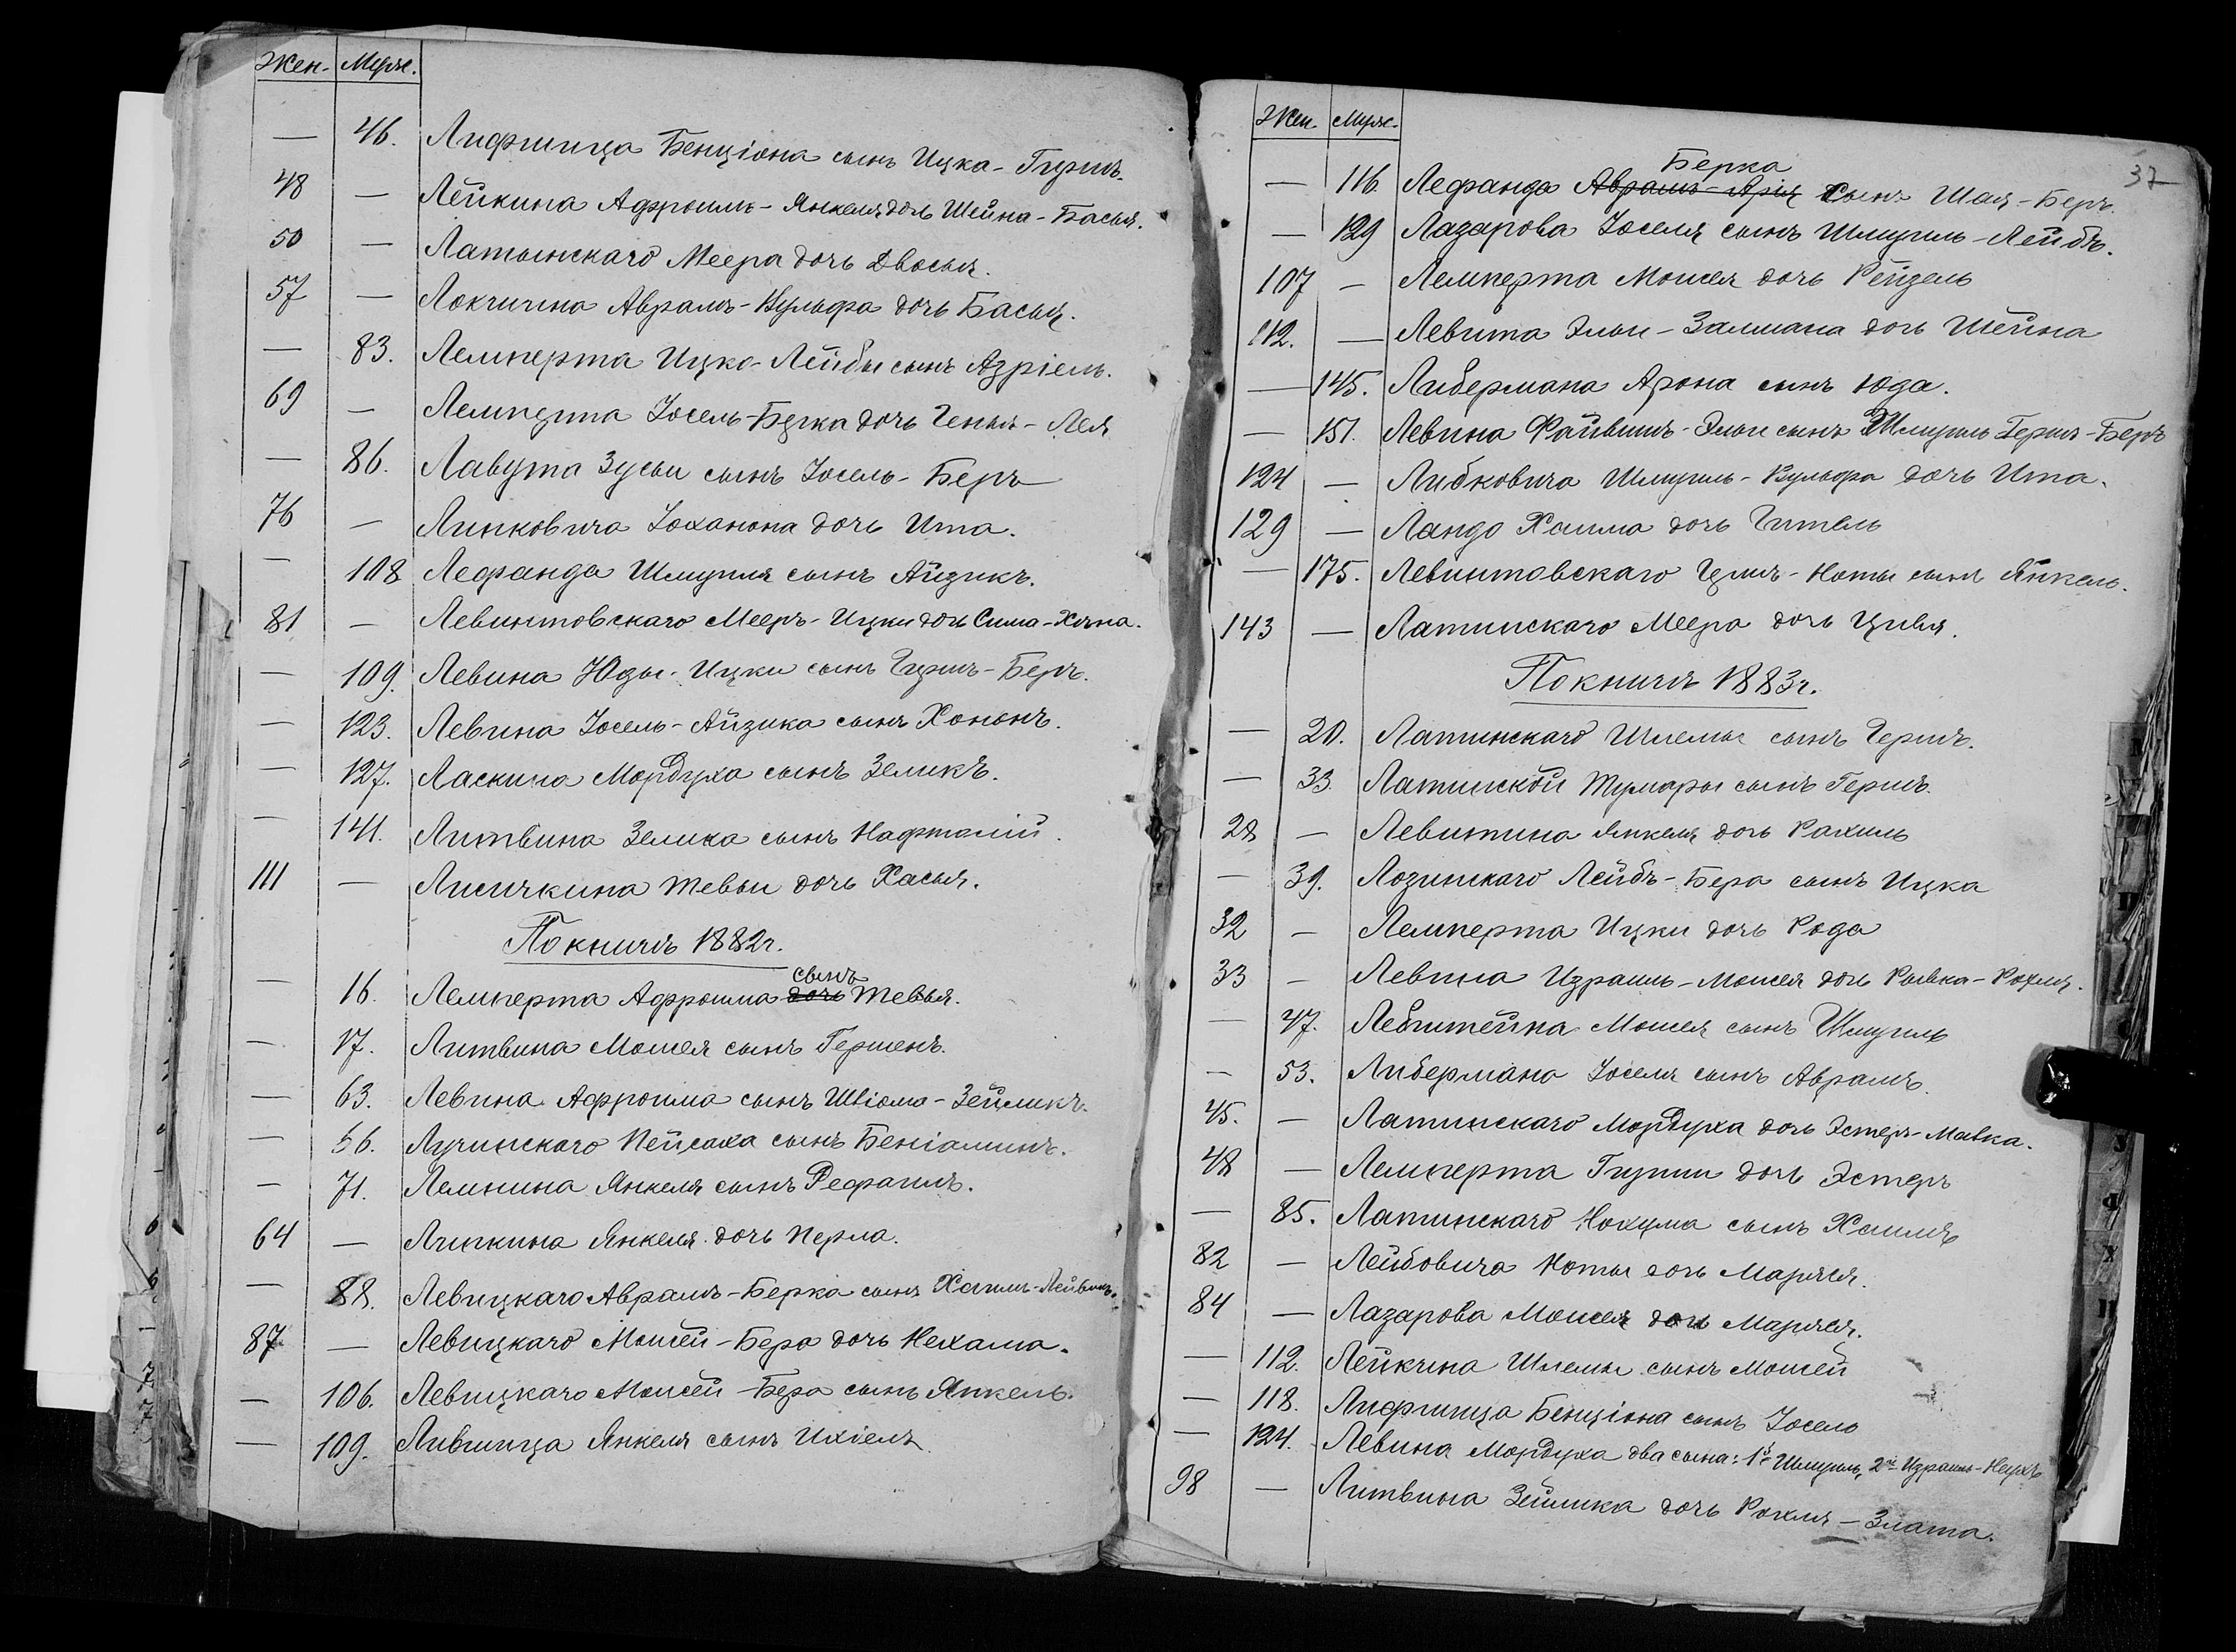 Жен. Муж.
— 46. Лифшица Бенціона сынъ Ицка-Гиршъ.
48 — Лейкина Афроимъ-Янкеля дочь Шейна-Басья.
50 — Латынскаго Меера дочь Двосья.
57 — Локчина Абрамъ-Вульфа дочь Басья.
— 83. Лемперта Ицко-Лейбы сынъ Азріель.
69 — Лемперта Іосель-Берка дочь Генья-Лея
— 86. Лавута Зусьи сынъ Іосель-Беръ
76 — Липковича Іоханона дочь Ита.
— 108 Лефанда Шмуиля сынъ Айзикъ.
81 — Левинтовскаго Мееръ-Ицки дочь Сима-Хана.
— 109. Левина Юды-Ицки сынъ Гиршъ-Беръ.
— 123. Левина Іосель-Айзика сынъ Хононъ.
— 127. Ласкина Мордуха сынъ Зеликъ.
— 141. Литвина Зелика сынъ Нафталій.
111 — Лисичкина Тевьи дочь Хасья.
По книгѣ 1882 г.
сынъ
— 16. Лемперта Афроима дочь Тевья.
— 17. Литвина Мовшея сынъ Гершенъ.
— 63. Левина Афроима сынъ Шліома-Зеймикъ.
— 66. Лучинскаго Пейсаха сынъ Беніаминъ.
— 71. Лемпина Янкеля сынъ Рефаилъ.
64 — Липкина Янкеля дочь Перла.
— 88. Левицкаго Абрамъ-Берка сынъ Хаимъ-Лейвикъ.
87 — Левицкаго Мовшей-Бера дочь Нехама.
— 106. Левицкаго Мовшей-Бера сынъ Янкель.
— 109. Лившица Янкеля сынъ Ихіель
37
Жен. Муж.
Берка
— 116. Лефанда Абрамъ-Арія сынъ Шая-Беръ.
— 129 Лазарова Іоселя сынъ Шмуиль-Лейбъ.
107 — Лемперта Мовшея дочь Рейзель
112. — Левита Эльи-Залмана дочь Шейна
— 145. Либермана Арона сынъ Юда.
— 151. Левина Файвишъ-Эльи сынъ Шмуилъ Гершъ-Беръ
124 — Либковича Шмуиль-Вульфа дочь Ита.
129 — Ландо Хаима дочь Гитель
— 175. Левинтовскаго Гершъ-Ноты сынъ Янкель.
143 — Латинскаго Меера дочь Цивья.
По книгѣ 1883 г.
— 20. Латинскаго Шлемы сынъ Гершъ.
— 33. Латинской Тумары сынъ Гершъ.
28 — Левитина Янкеля дочь Рахиль
— 39. Лозинскаго Лейбъ-Бера сынъ Ицка
32 — Лемперта Ицки дочь Рода
33 — Левина Израиль-Мовшея дочь Рывка-Рохля.
— 47. Левштейна Мовшея сынъ Шмуилъ
— 53. Либермана Іоселя сынъ Абрамъ.
45. — Латинскаго Мордуха дочь Эстеръ-Малка.
48 — Лемперта Гирши дочь Эстеръ
— 85. Латинскаго Нохума сынъ Хаимъ
82 — Лейбовича Ноты дочь Маряся.
84 — Лазарова Мовшея дочь Маряся.
— 112. Лейкина Шлемы сынъ Мовшей
— 118. Лифшица Бенціона сынъ Іосель
— 124. Левина Мордуха два сына: 1й Шмуиль, 2й Израиль-Неухъ
98 — Литвина Зеймика дочь Рохля-Злата.